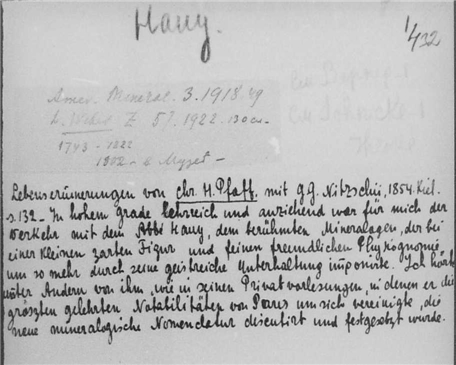 Hauy.
1/432
Amer. Mineral. 3. 1918. 49
L. Weber Z 57. 1922.
1743 - 1822
1802 -
Lebenserinnerungen von Chr. H. Pfaff, mit g.G. Nitzschii, 1854. Kiel.
s.132 - In hohem grade lehrreich und anziehend war für mich der
Verkehr mit dem Abbé Hauy, dem berühmten Mineralogen, der bei
einer kleinen zarten Figur und feinen freundlichen Physiognomie
um so mehr durch seine geistreiche Unterhaltung imponirte. Ich hörte
unter Andern von ihm, wie in seinen Privatvorlesungen, in denen er die
grössten gelehrten Notabilitäten von Paris um sich vereinigte, die
neue mineralogische Nomenclatur discutirt und festgesetzt wurde.